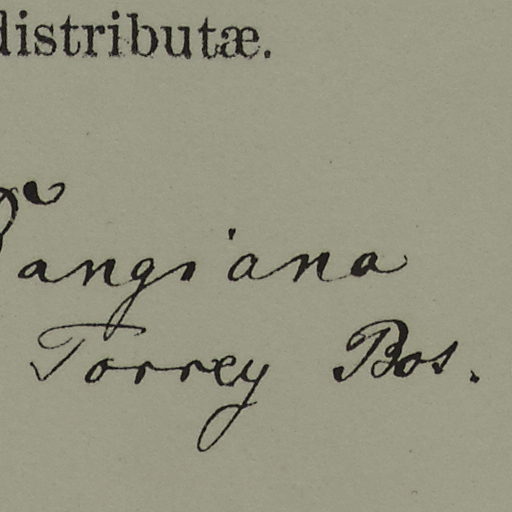 distributæ.
angiana
Torrey Bos.